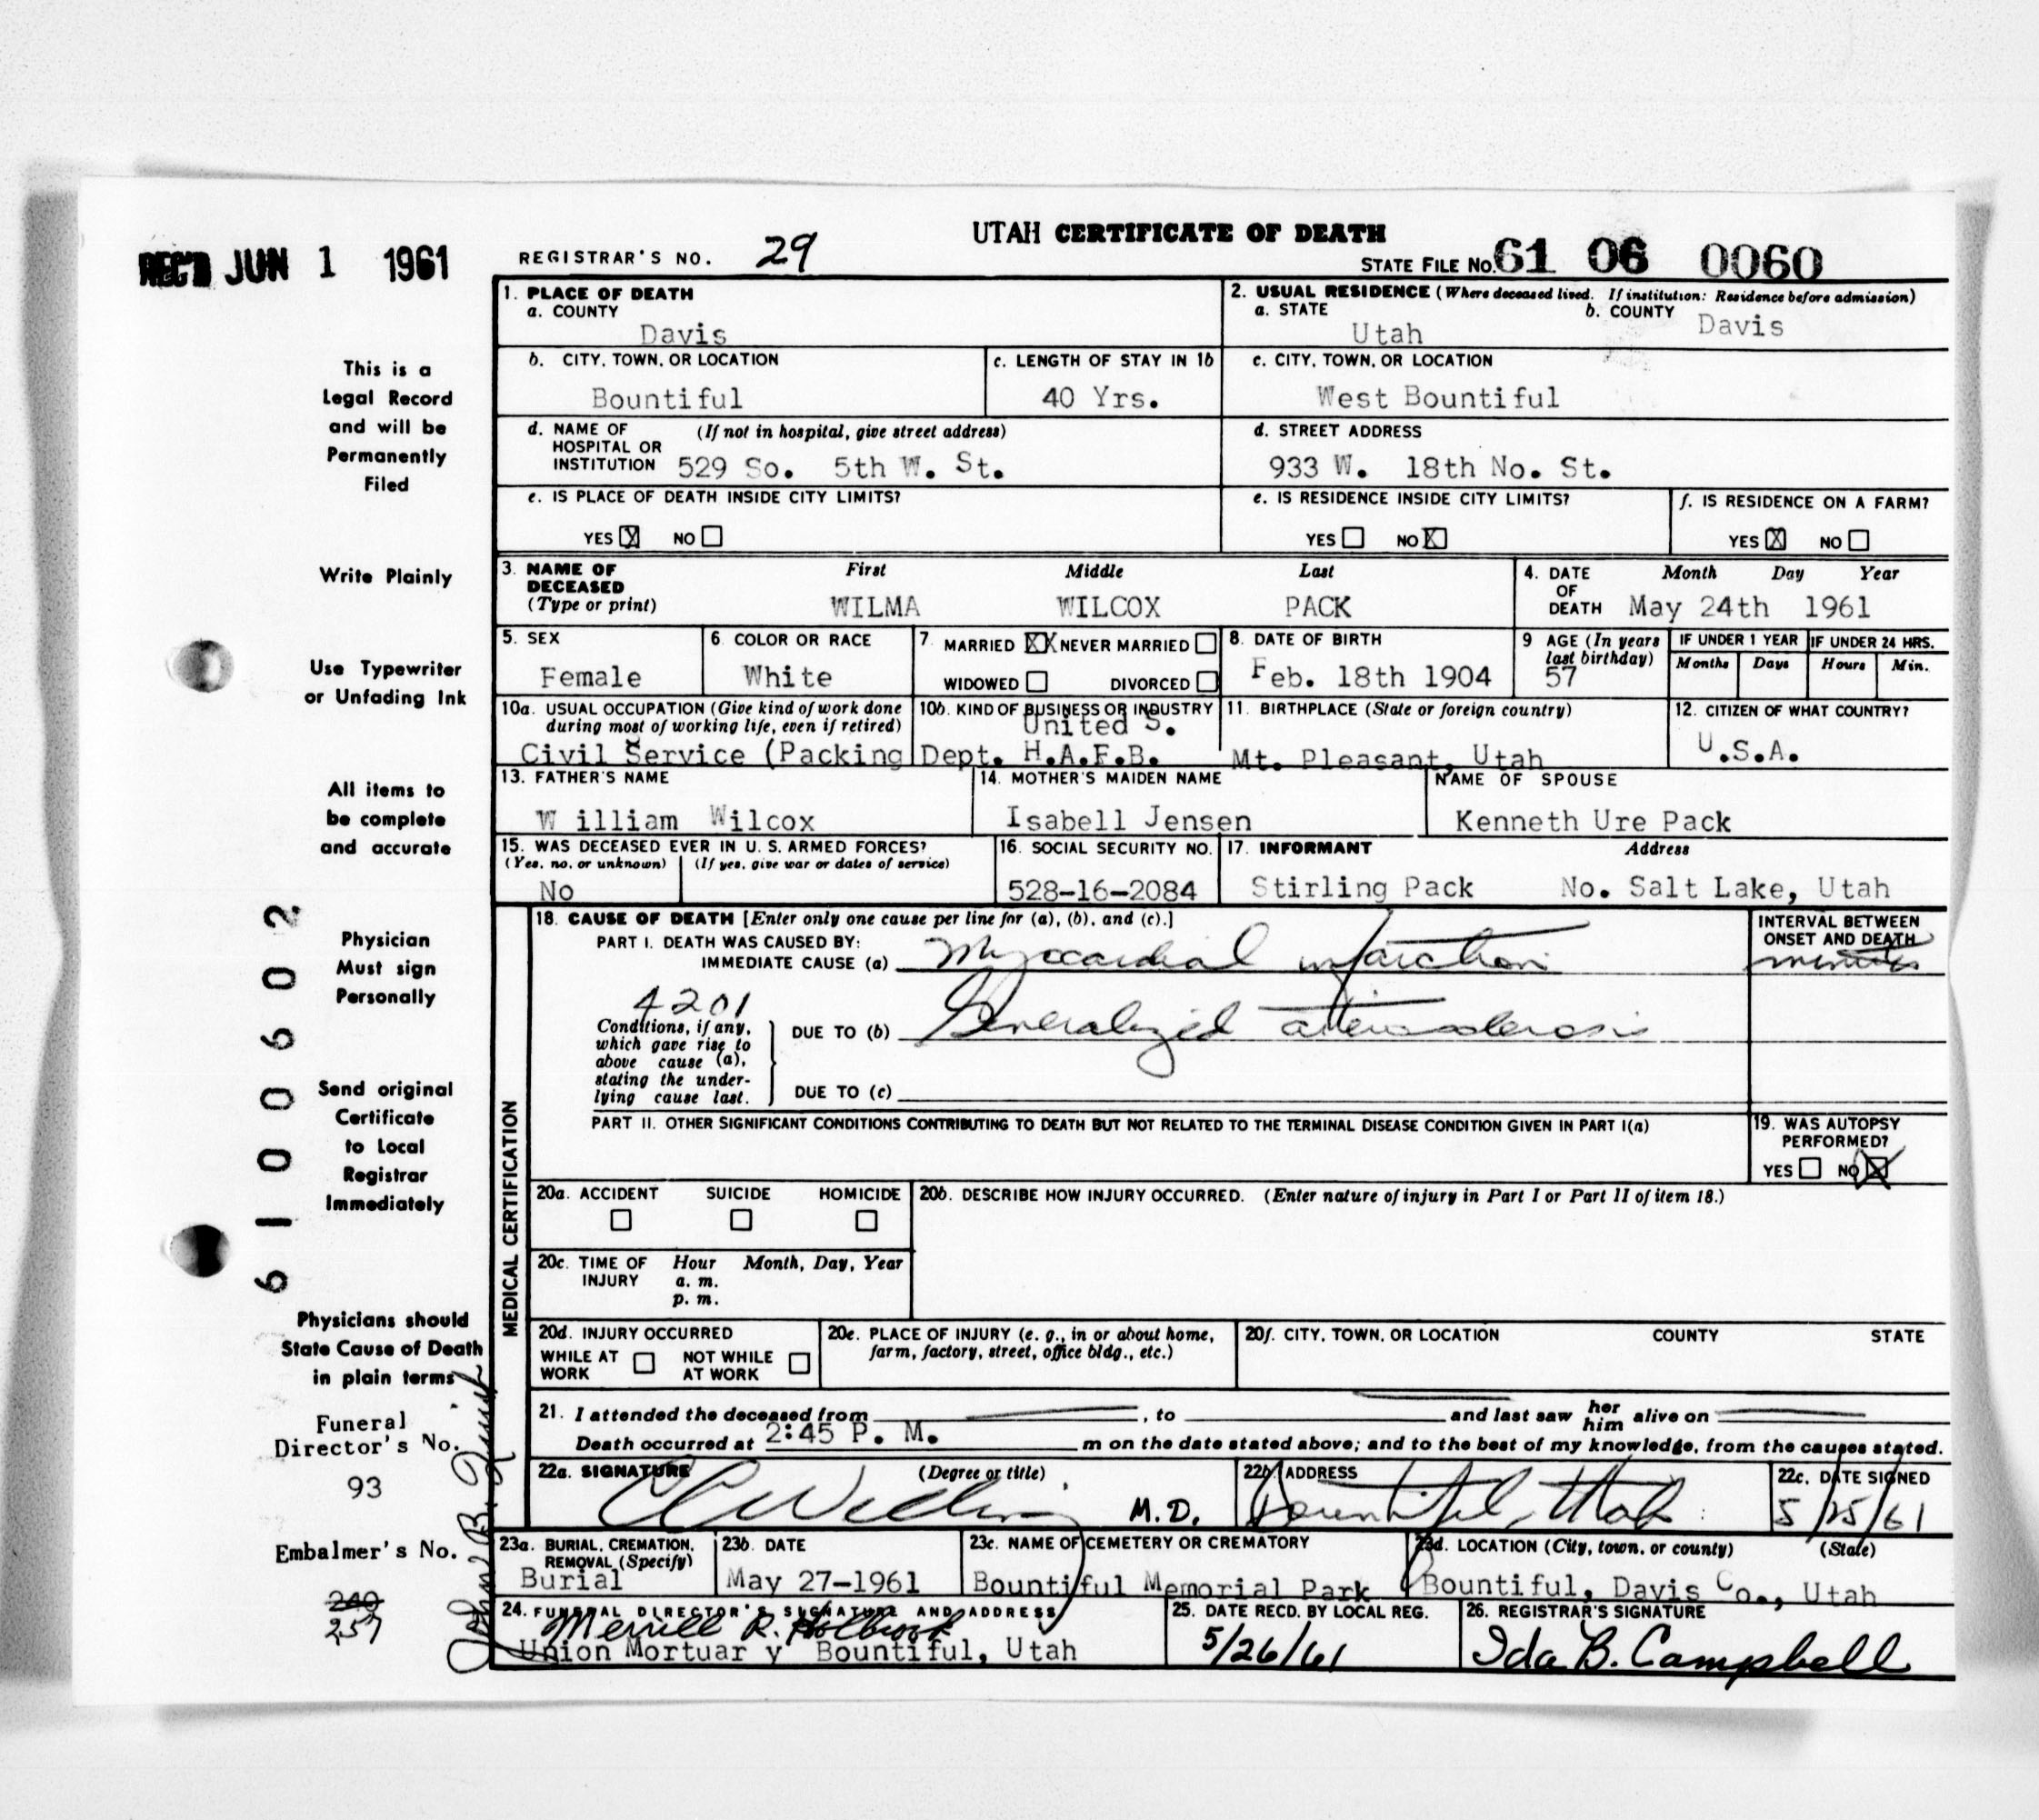 UTAH CERTIFICATE OF DEATH
REC'D JUN 1 1961
REGISTRAR'S NO. 29
STATE FILE NO. 61 06 0060
This is a
Legal Record
and will be
Permanently
Filed
Write Plainly
Use Typewriter
or Unfading Ink
All items to
be complete
and accurate
Physician
Must sign
Personally
61 00602
Send original
Certificate
to Local
Registrar
Immediately
Physicians should
State Cause of Death
in plain terms
Funeral
Director's No.
93
Embalmer's No.
240
257
1. PLACE OF DEATH
a. COUNTY
Davis
2. USUAL RESIDENCE (Where deceased lived. If institution: Residence before admission)
a. STATE
Utah
b. COUNTY Davis
b. CITY, TOWN, OR LOCATION
Bountiful
c. LENGTH OF STAY IN 1b
40 Yrs.
c. CITY, TOWN, OR LOCATION
West Bountiful
d. NAME OF (If not in hospital, give street address)
HOSPITAL OR
INSTITUTION 529 So. 5th W. St.
d. STREET ADDRESS
933 W. 18th No. St.
e. IS PLACE OF DEATH INSIDE CITY LIMITS?
YES X NO
e. IS RESIDENCE INSIDE CITY LIMITS?
YES NO X
f. IS RESIDENCE ON A FARM?
YES X NO
3. NAME OF First Middle Last
DECEASED
(Type or print) WILMA WILCOX PACK
4. DATE Month Day Year
OF
DEATH May 24th 1961
5. SEX
Female
6. COLOR OR RACE
White
7. MARRIED XX NEVER MARRIED
WIDOWED DIVORCED
8. DATE OF BIRTH
Feb. 18th 1904
9 AGE (In years
last birthday)
57
IF UNDER 1 YEAR IF UNDER 24 HRS.
Months Days Hours Min.
10a. USUAL OCCUPATION (Give kind of work done
during most of working life, even if retired)
10b. KIND OF BUSINESS OR INDUSTRY
United S.
Civil Service (Packing Dept. H.A.F.B.
11. BIRTHPLACE (State or foreign country)
Mt. Pleasant, Utah
12. CITIZEN OF WHAT COUNTRY?
U.S.A.
13. FATHER'S NAME
W illiam Wilcox
14. MOTHER'S MAIDEN NAME
Isabell Jensen
NAME OF SPOUSE
Kenneth Ure Pack
15. WAS DECEASED EVER IN U. S. ARMED FORCES?
(Yes, no, or unknown) (If yes, give war or dates of service)
No
16. SOCIAL SECURITY NO.
528-16-2084
17. INFORMANT Address
Stirling Pack No. Salt Lake, Utah
MEDICAL CERTIFICATION
18. CAUSE OF DEATH [Enter only one cause per line for (a), (b), and (c).]
PART I. DEATH WAS CAUSED BY:
IMMEDIATE CAUSE (a) Myocardial infarction
INTERVAL BETWEEN
ONSET AND DEATH
minutes
4201
Conditions, if any,
which gave rise to
above cause (a),
stating the under-
lying cause last.
DUE TO (b) Generalized arteriosclerosis
DUE TO (c)
PART II. OTHER SIGNIFICANT CONDITIONS CONTRIBUTING TO DEATH BUT NOT RELATED TO THE TERMINAL DISEASE CONDITION GIVEN IN PART I(a)
19. WAS AUTOPSY
PERFORMED?
YES NO X
20a. ACCIDENT SUICIDE HOMICIDE
20b. DESCRIBE HOW INJURY OCCURRED. (Enter nature of injury in Part I or Part II of item 18.)
20c. TIME OF Hour Month, Day, Year
INJURY a. m.
p. m.
20d. INJURY OCCURRED
WHILE AT NOT WHILE
WORK AT WORK
20e. PLACE OF INJURY (e. g., in or about home,
farm, factory, street, office bldg., etc.)
20f. CITY, TOWN, OR LOCATION COUNTY STATE
21. I attended the deceased from , to and last saw her him alive on
Death occurred at 2:45 P. M. m on the date stated above; and to the best of my knowledge, from the causes stated.
22a. SIGNATURE (Degree or title)
M.D.
22b. ADDRESS
Bountiful, Utah
22c. DATE SIGNED
5/25/61
23a. BURIAL, CREMATION,
REMOVAL (Specify)
Burial
23b. DATE
May 27-1961
23c. NAME OF CEMETERY OR CREMATORY
Bountiful Memorial Park
23d. LOCATION (City, town, or county) (State)
Bountiful, Davis Co., Utah
24. FUNERAL DIRECTOR'S SIGNATURE AND ADDRESS
Merrill R. Holbrook
Union Mortuar y Bountiful, Utah
25. DATE RECD. BY LOCAL REG.
5/26/61
26. REGISTRAR'S SIGNATURE
Ida B. Campbell
John B.